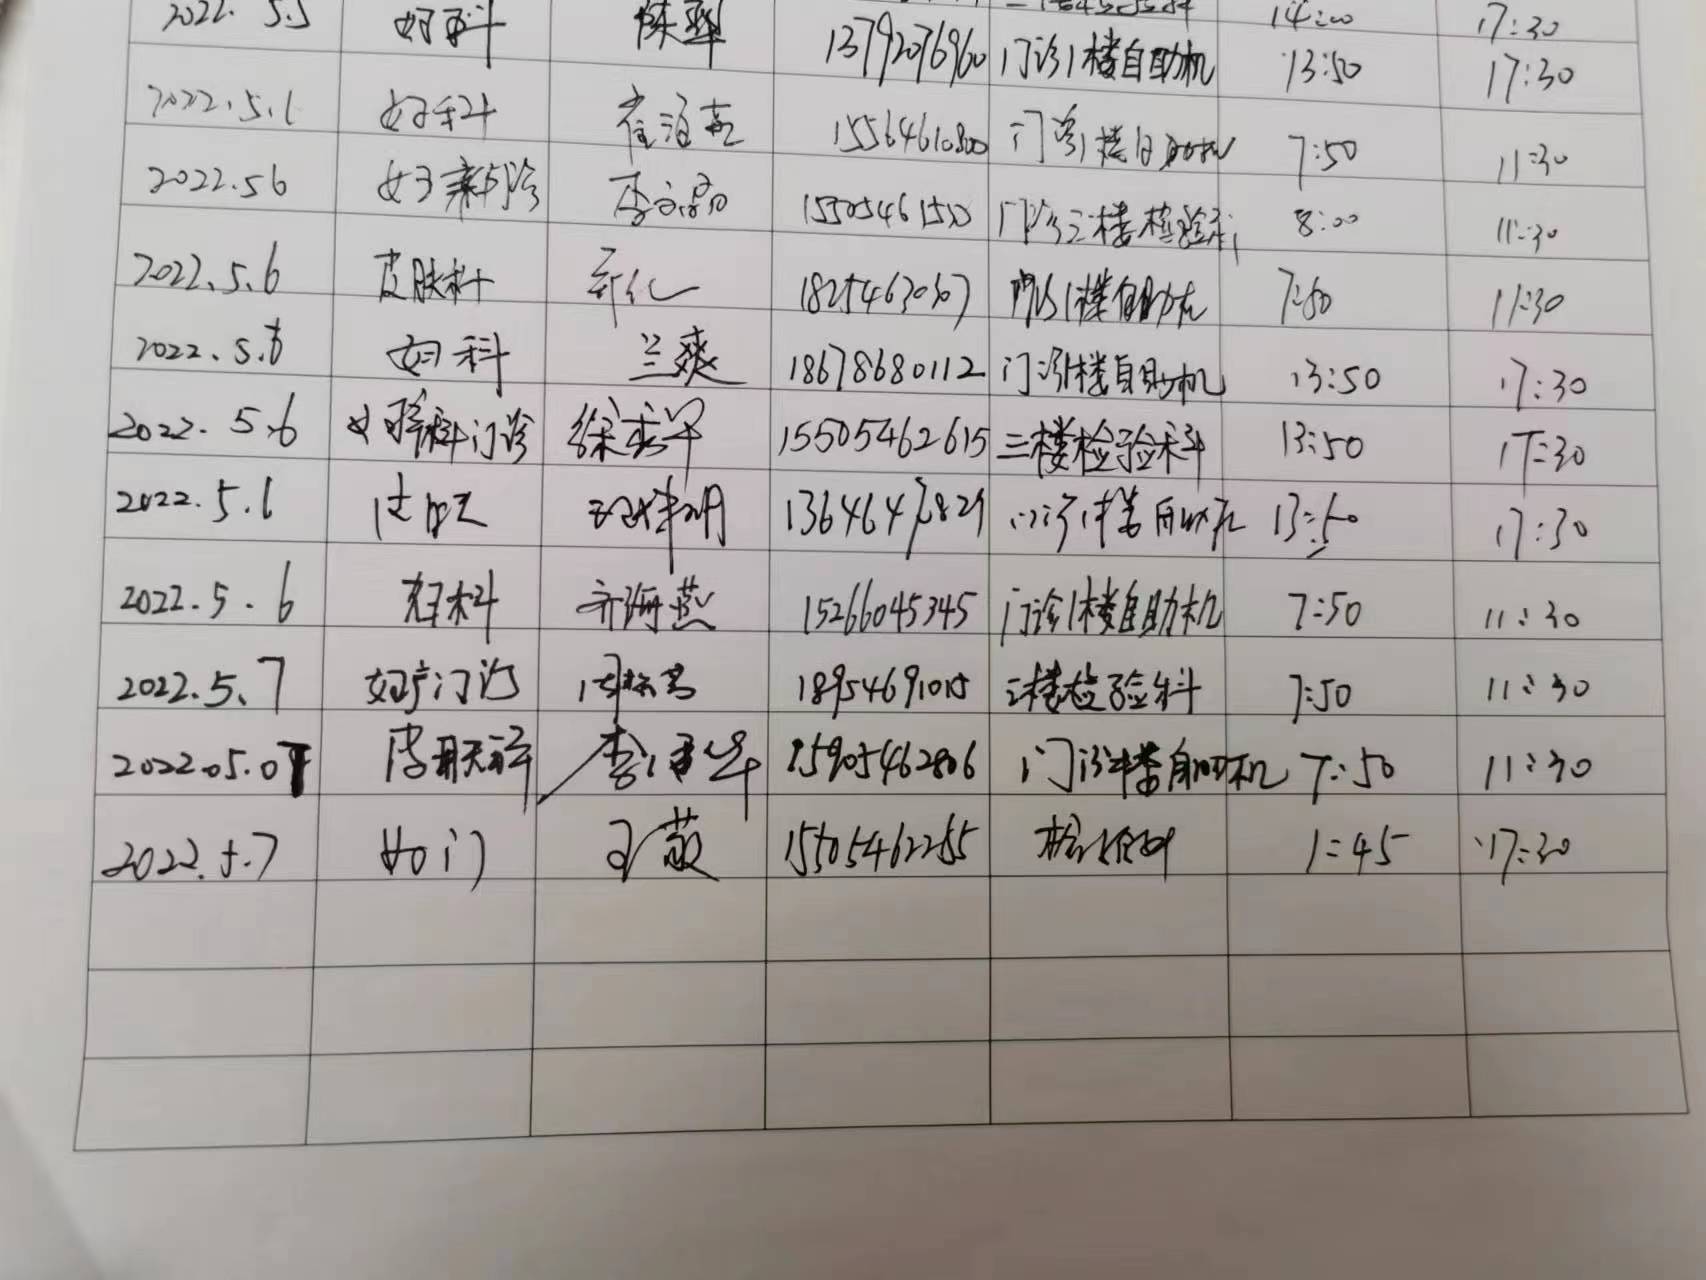 2022. 5.5 妇科 陈翠 13792076960 门诊1楼自助机 13:50 17:30
14:00 17:30
2022.5.6 妇科 崔海燕 15564610800 门诊1楼自助机 7:50 11:30
2022.56 门诊三楼检验科 8:00 11:30
2022.5.6 皮肤科 18254630307 门诊1楼自助机 7:50 11:30
2022.5.6 妇科 兰爽 18678680112 门诊1楼自助机 13:50 17:30
2022.5.6 门诊 15505462615 三楼检验科 13:50 17:30
2022.5.6 门诊1楼自助机 13:50 17:30
2022.5.6 妇科 齐海燕 15266045345 门诊1楼自助机 7:50 11:30
2022.5.7 妇产门诊 18954691015 三楼检验科 7:50 11:30
2022.05.07 皮肤科 15905462806 门诊1楼自助机 7:50 11:30
2022.5.7 妇门 王薇 15505462255 检验科 1:45 17:30